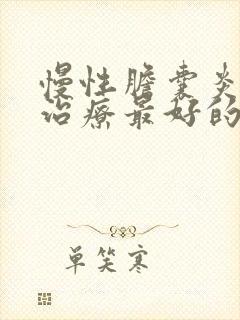 慢性膽囊炎
治療最好的
单笑寒